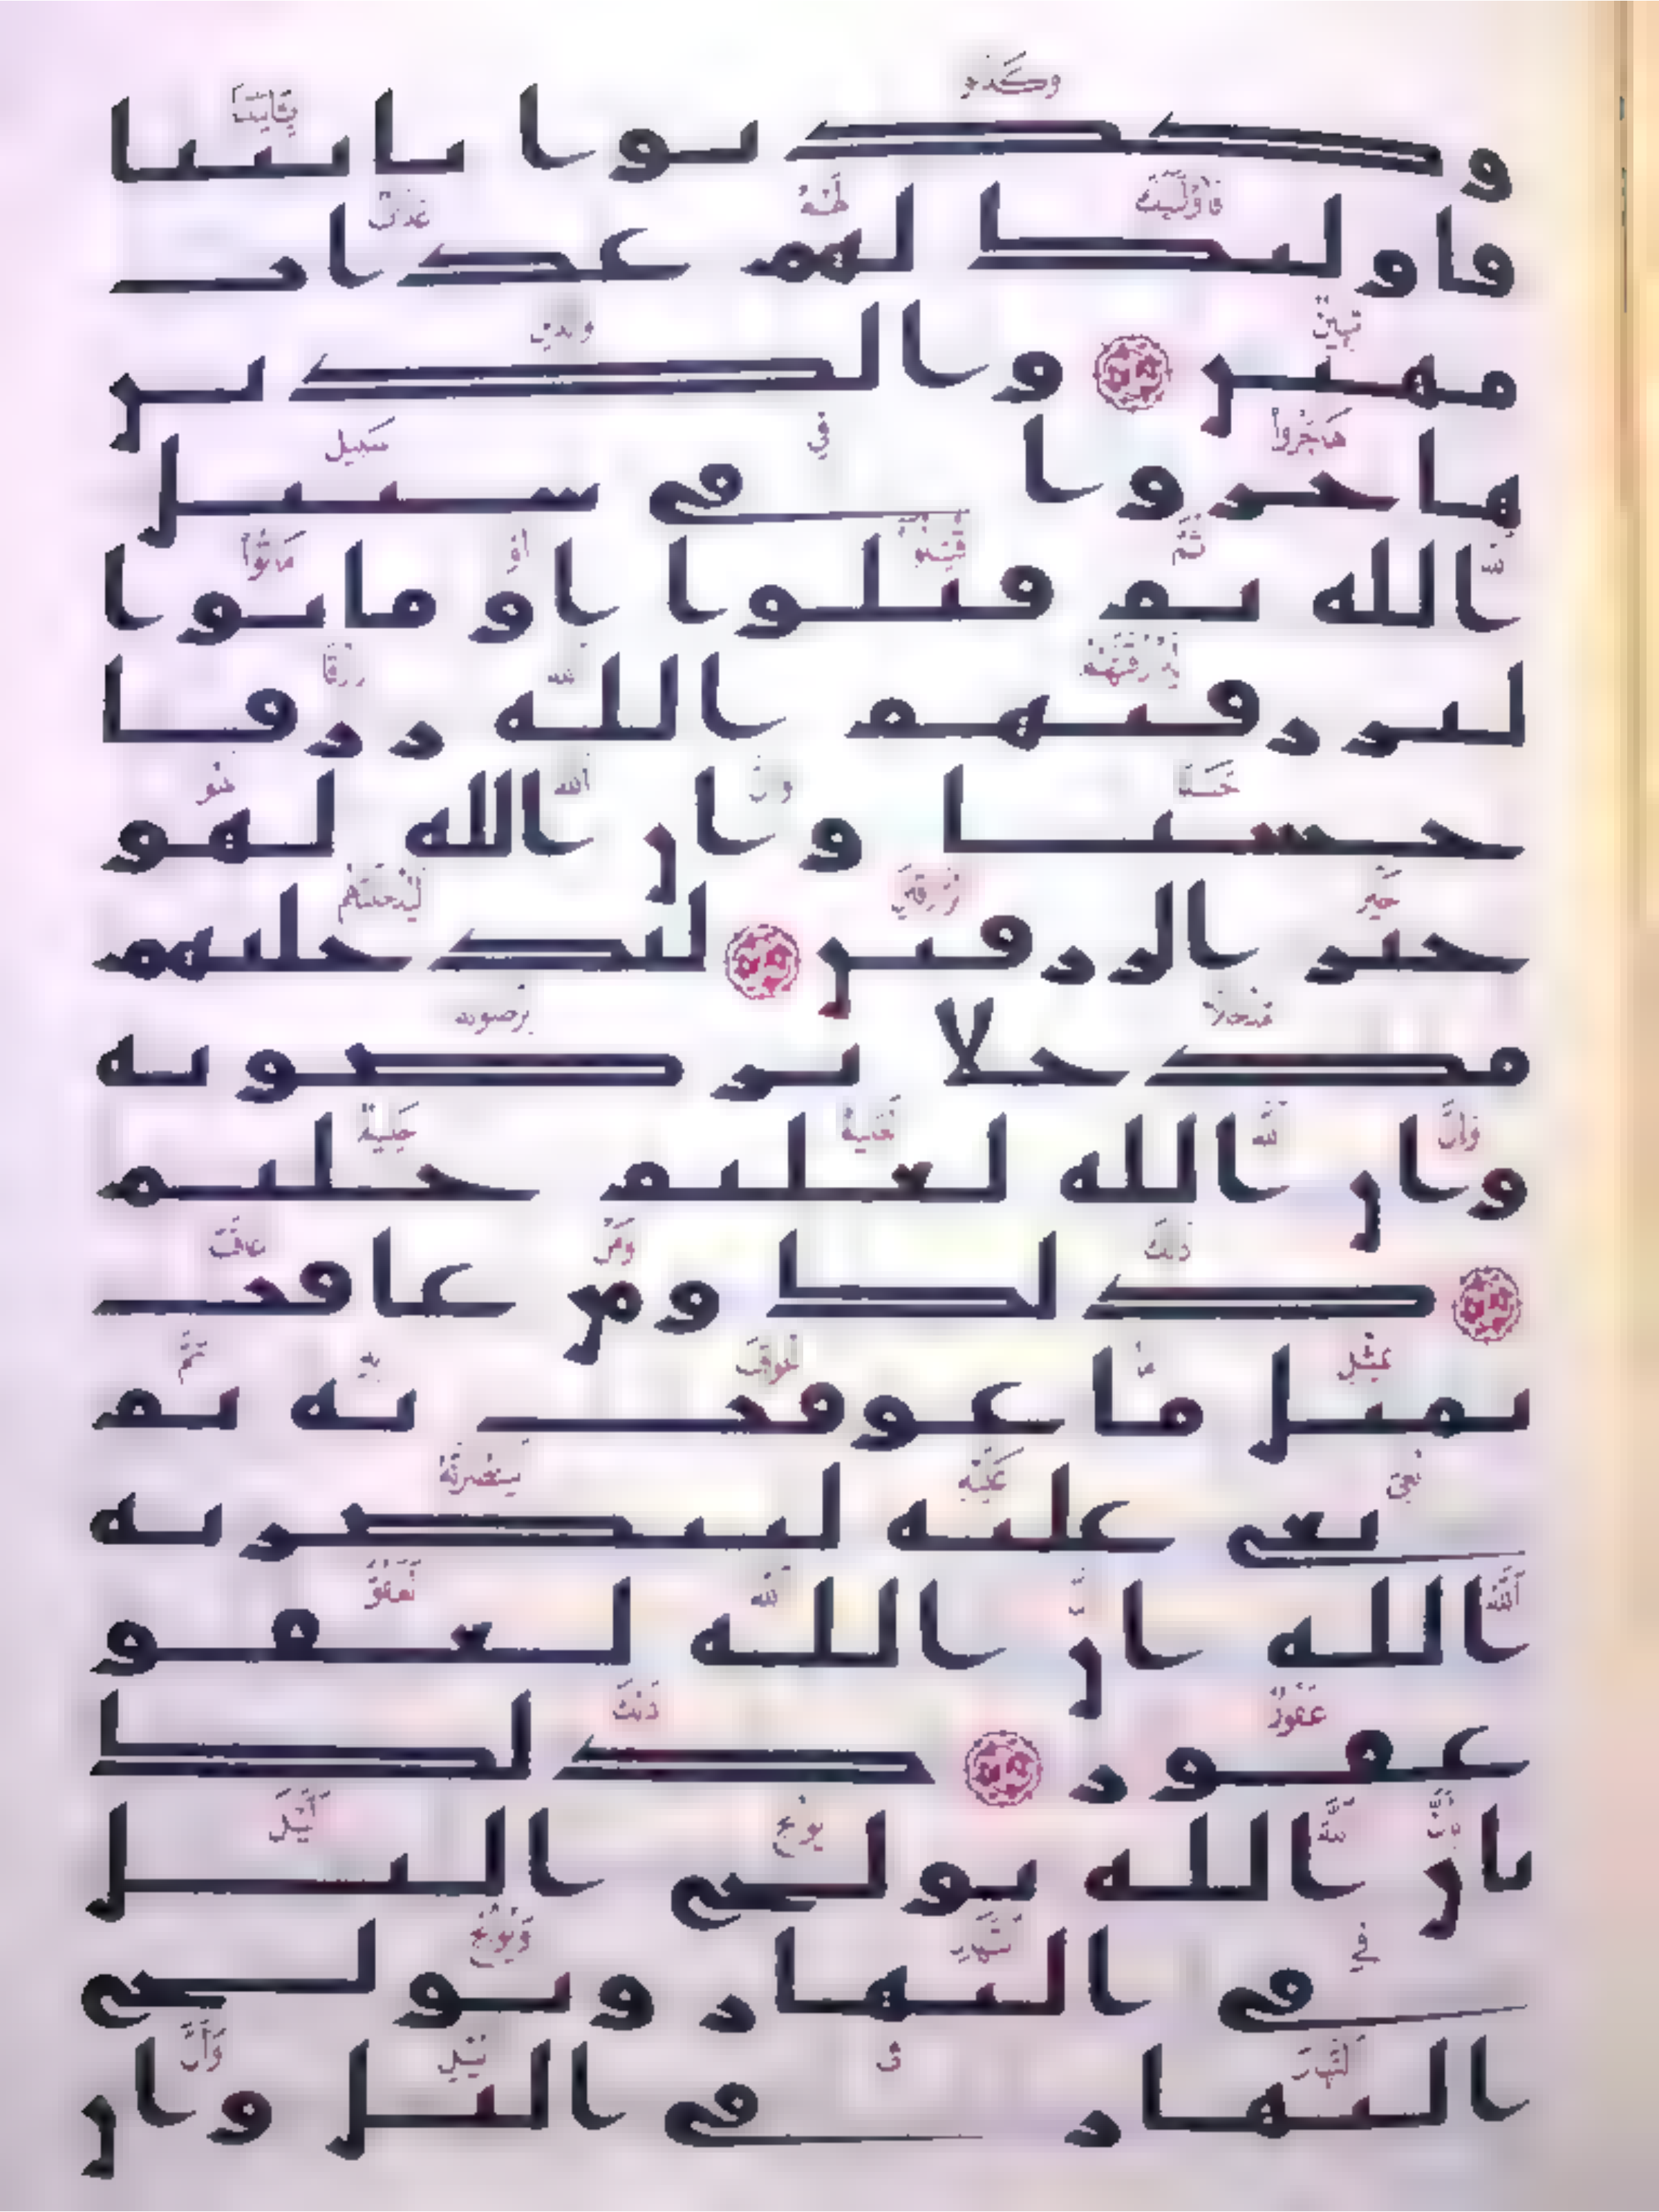 وكذبوا بايتنا
فاوليك لهم عذاب
مهين والذين
هاجروا في سبيل
الله ثم قتلوا او ماتوا
ليرزقنهم الله رزقا
حسنا وان الله لهو
خير الرزقين ليدخلنهم
مدخلا يرضونه
وان الله لعليم حليم
ذلك ومن عاقب
بمثل ما عوقب به ثم
بغي عليه لينصرنه
الله ان الله لعفو
غفور ذلك
بان الله يولج اليل
في النهار ويولج
النهار في اليل وان